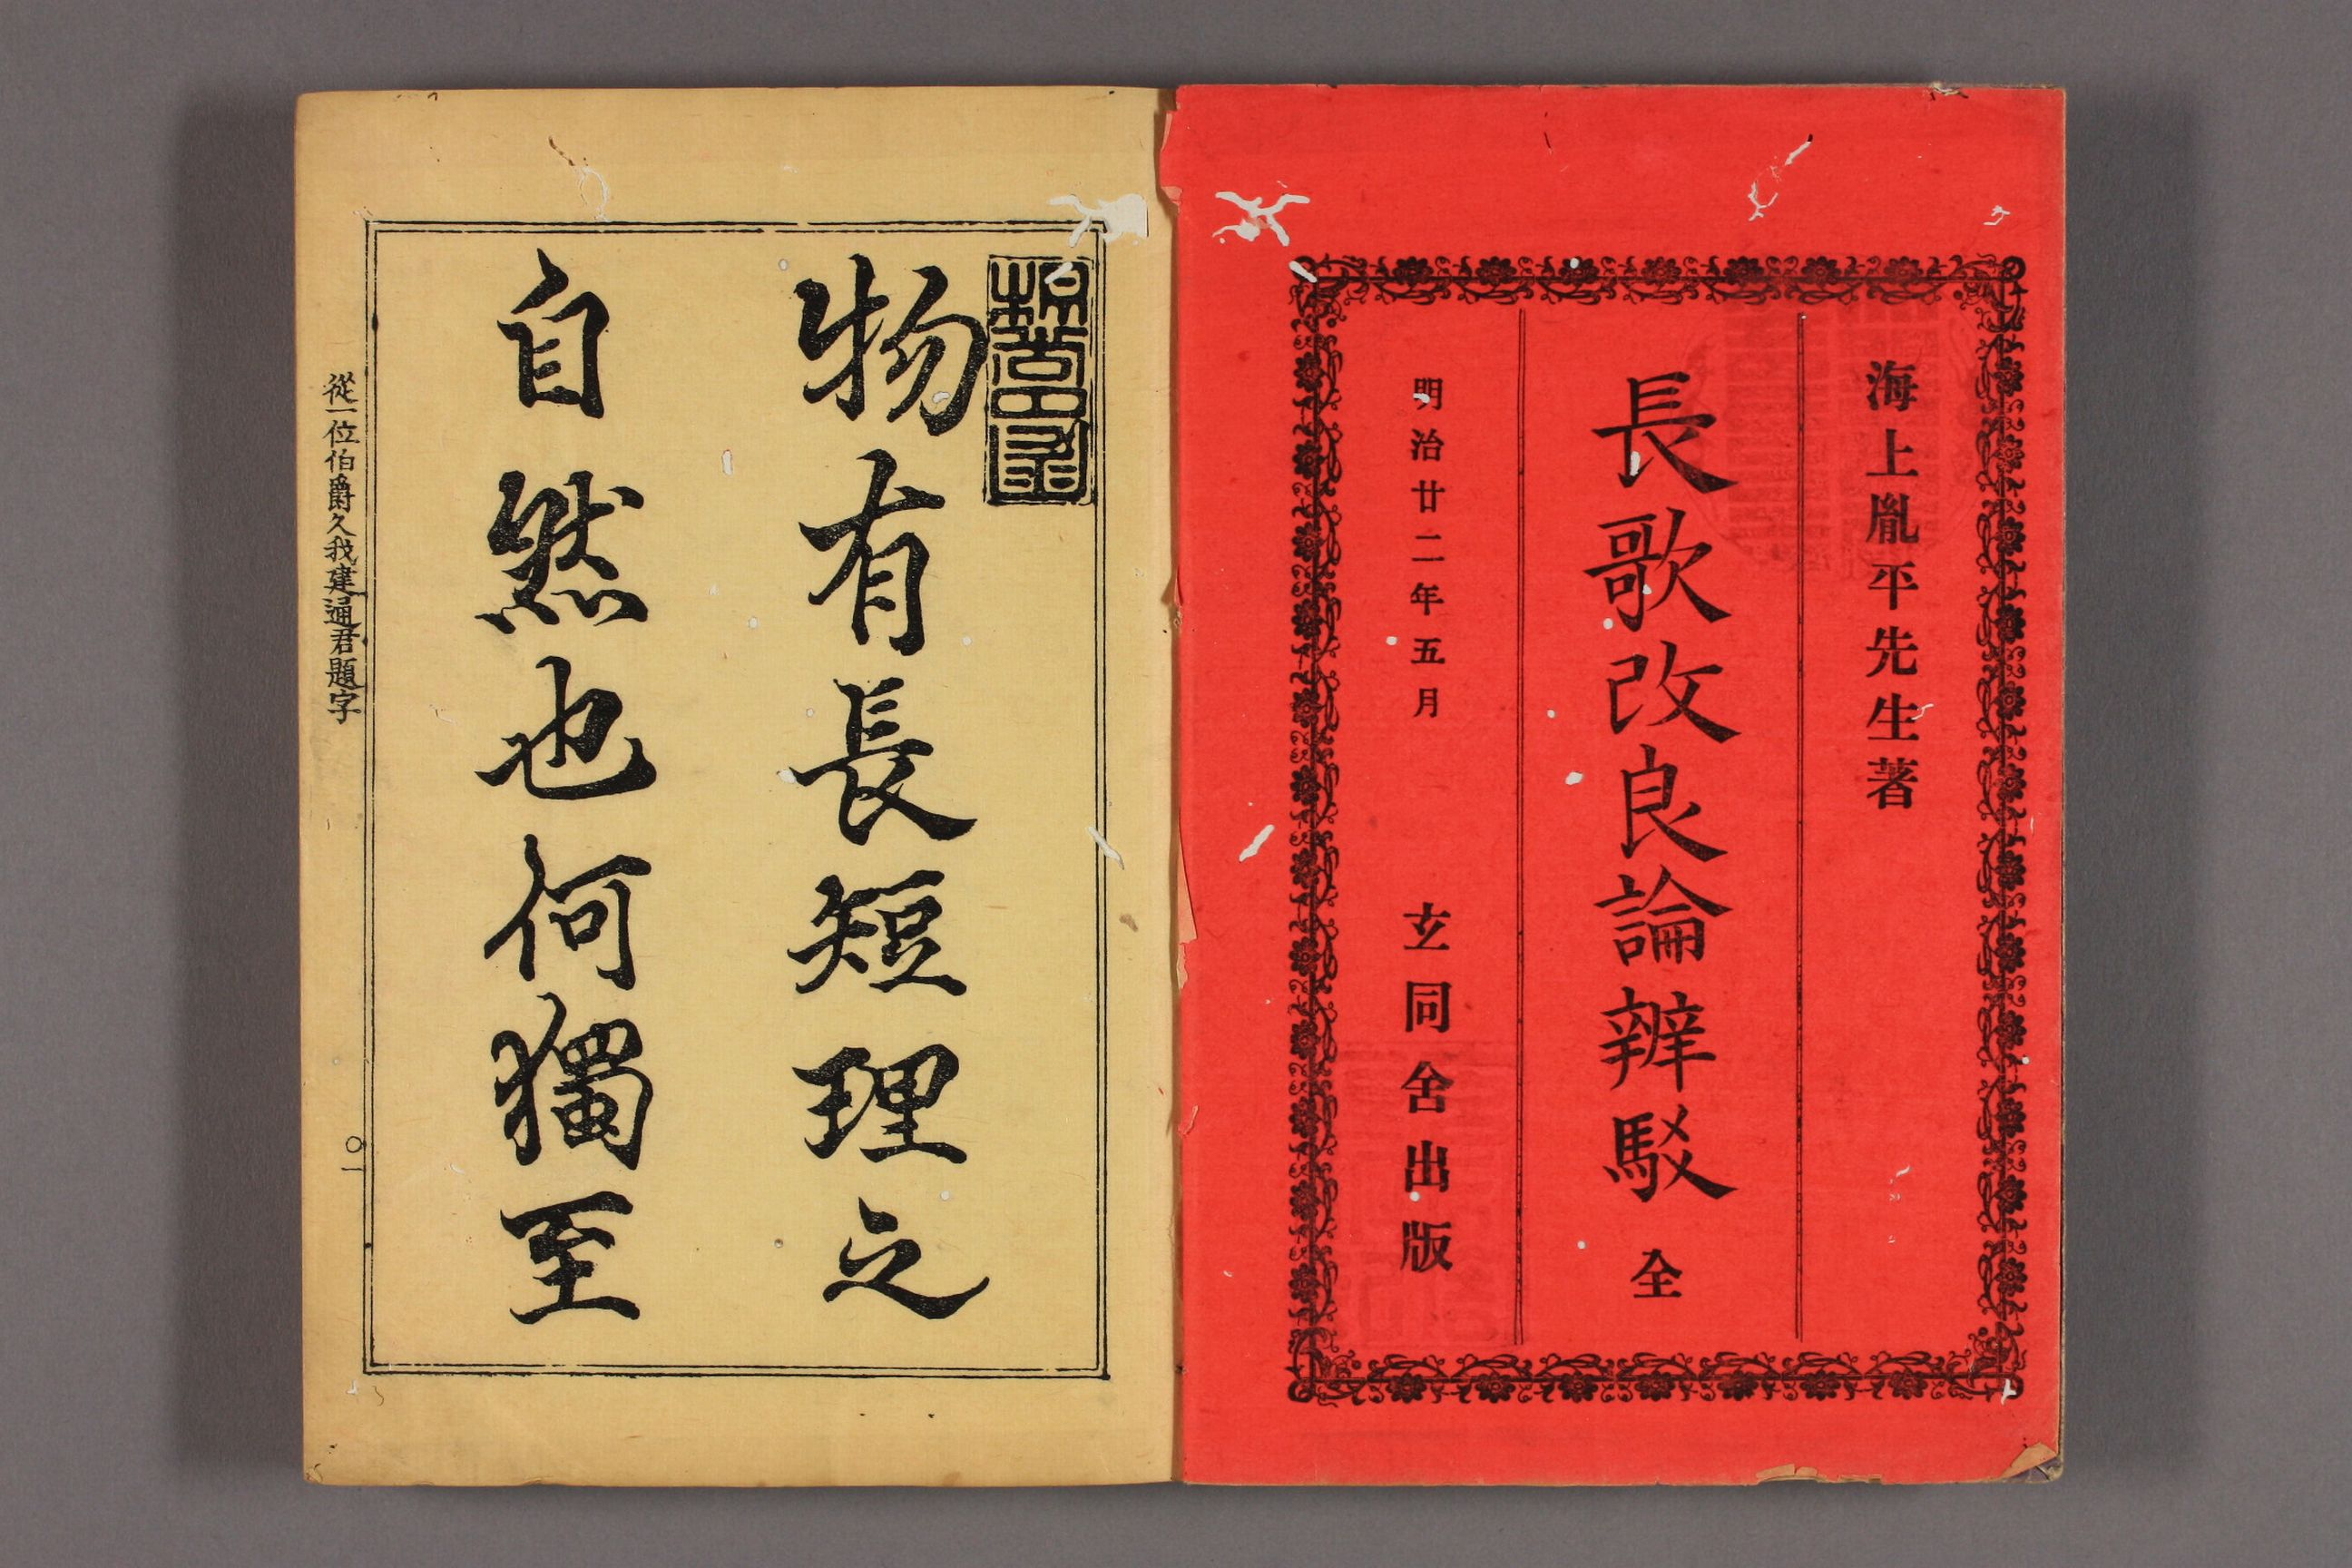 海上胤平先生著
長歌改良論辨駁 全
明治廿二年五月 玄同舍出版
物有長短理之
自然也何獨至
從一位伯爵久我建通君題字
〇一